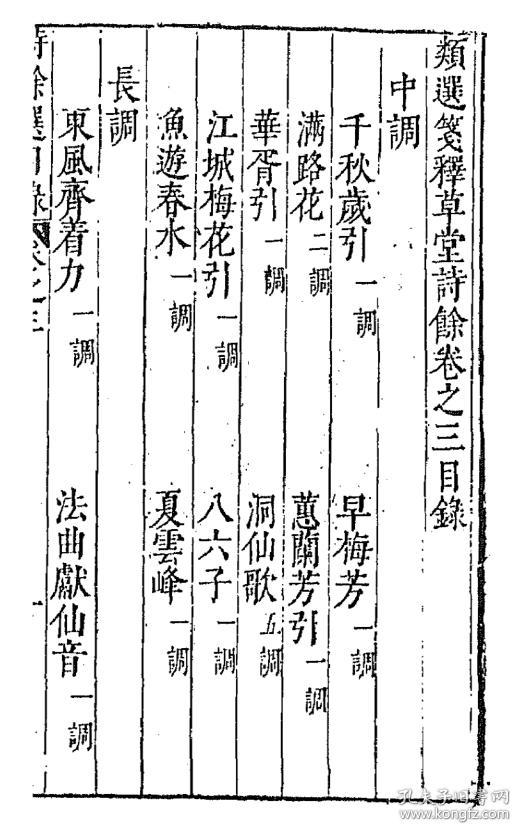 類選箋釋草堂詩餘卷之三目錄
中調
千秋歲引一調 早梅芳一調
滿路花二調 蕙蘭芳引一調
華胥引一調 洞仙歌五調
江城梅花引一調 八六子一調
魚遊春水一調 夏雲峰一調
長調
東風齊着力一調 法曲獻仙音一調
詩餘選目錄 卷之三 一
孔夫子旧书网